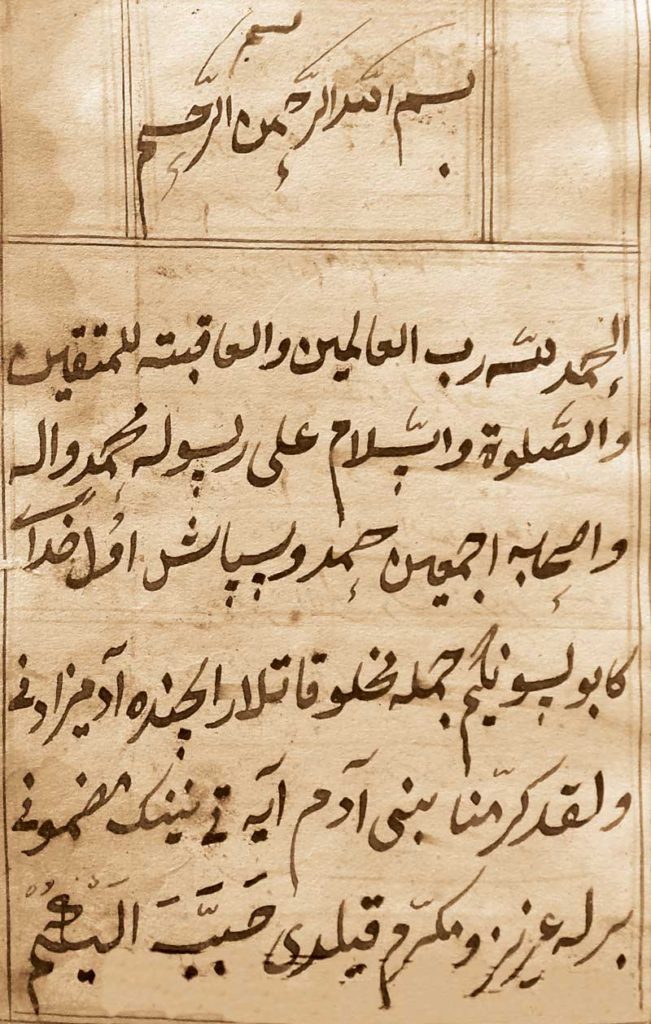 بسم
بسم الله الرَّحْمن الرَّحِيم
الحمد لله رب العالمين والعاقبته للمتقين
والصَّلوة والسَّلام على رسوله محمد واله
واصحابه اجمعين حمد و سپاش اول خدا
كا بولسونكيم جمله مخلوقاتلار ايچنده آدميزادنى
ولقد كرّمنا بنى آدم آيه تى نينك مضمونى
برله عزيز و مكرّم قيلدى حَبَّبَ اليكم